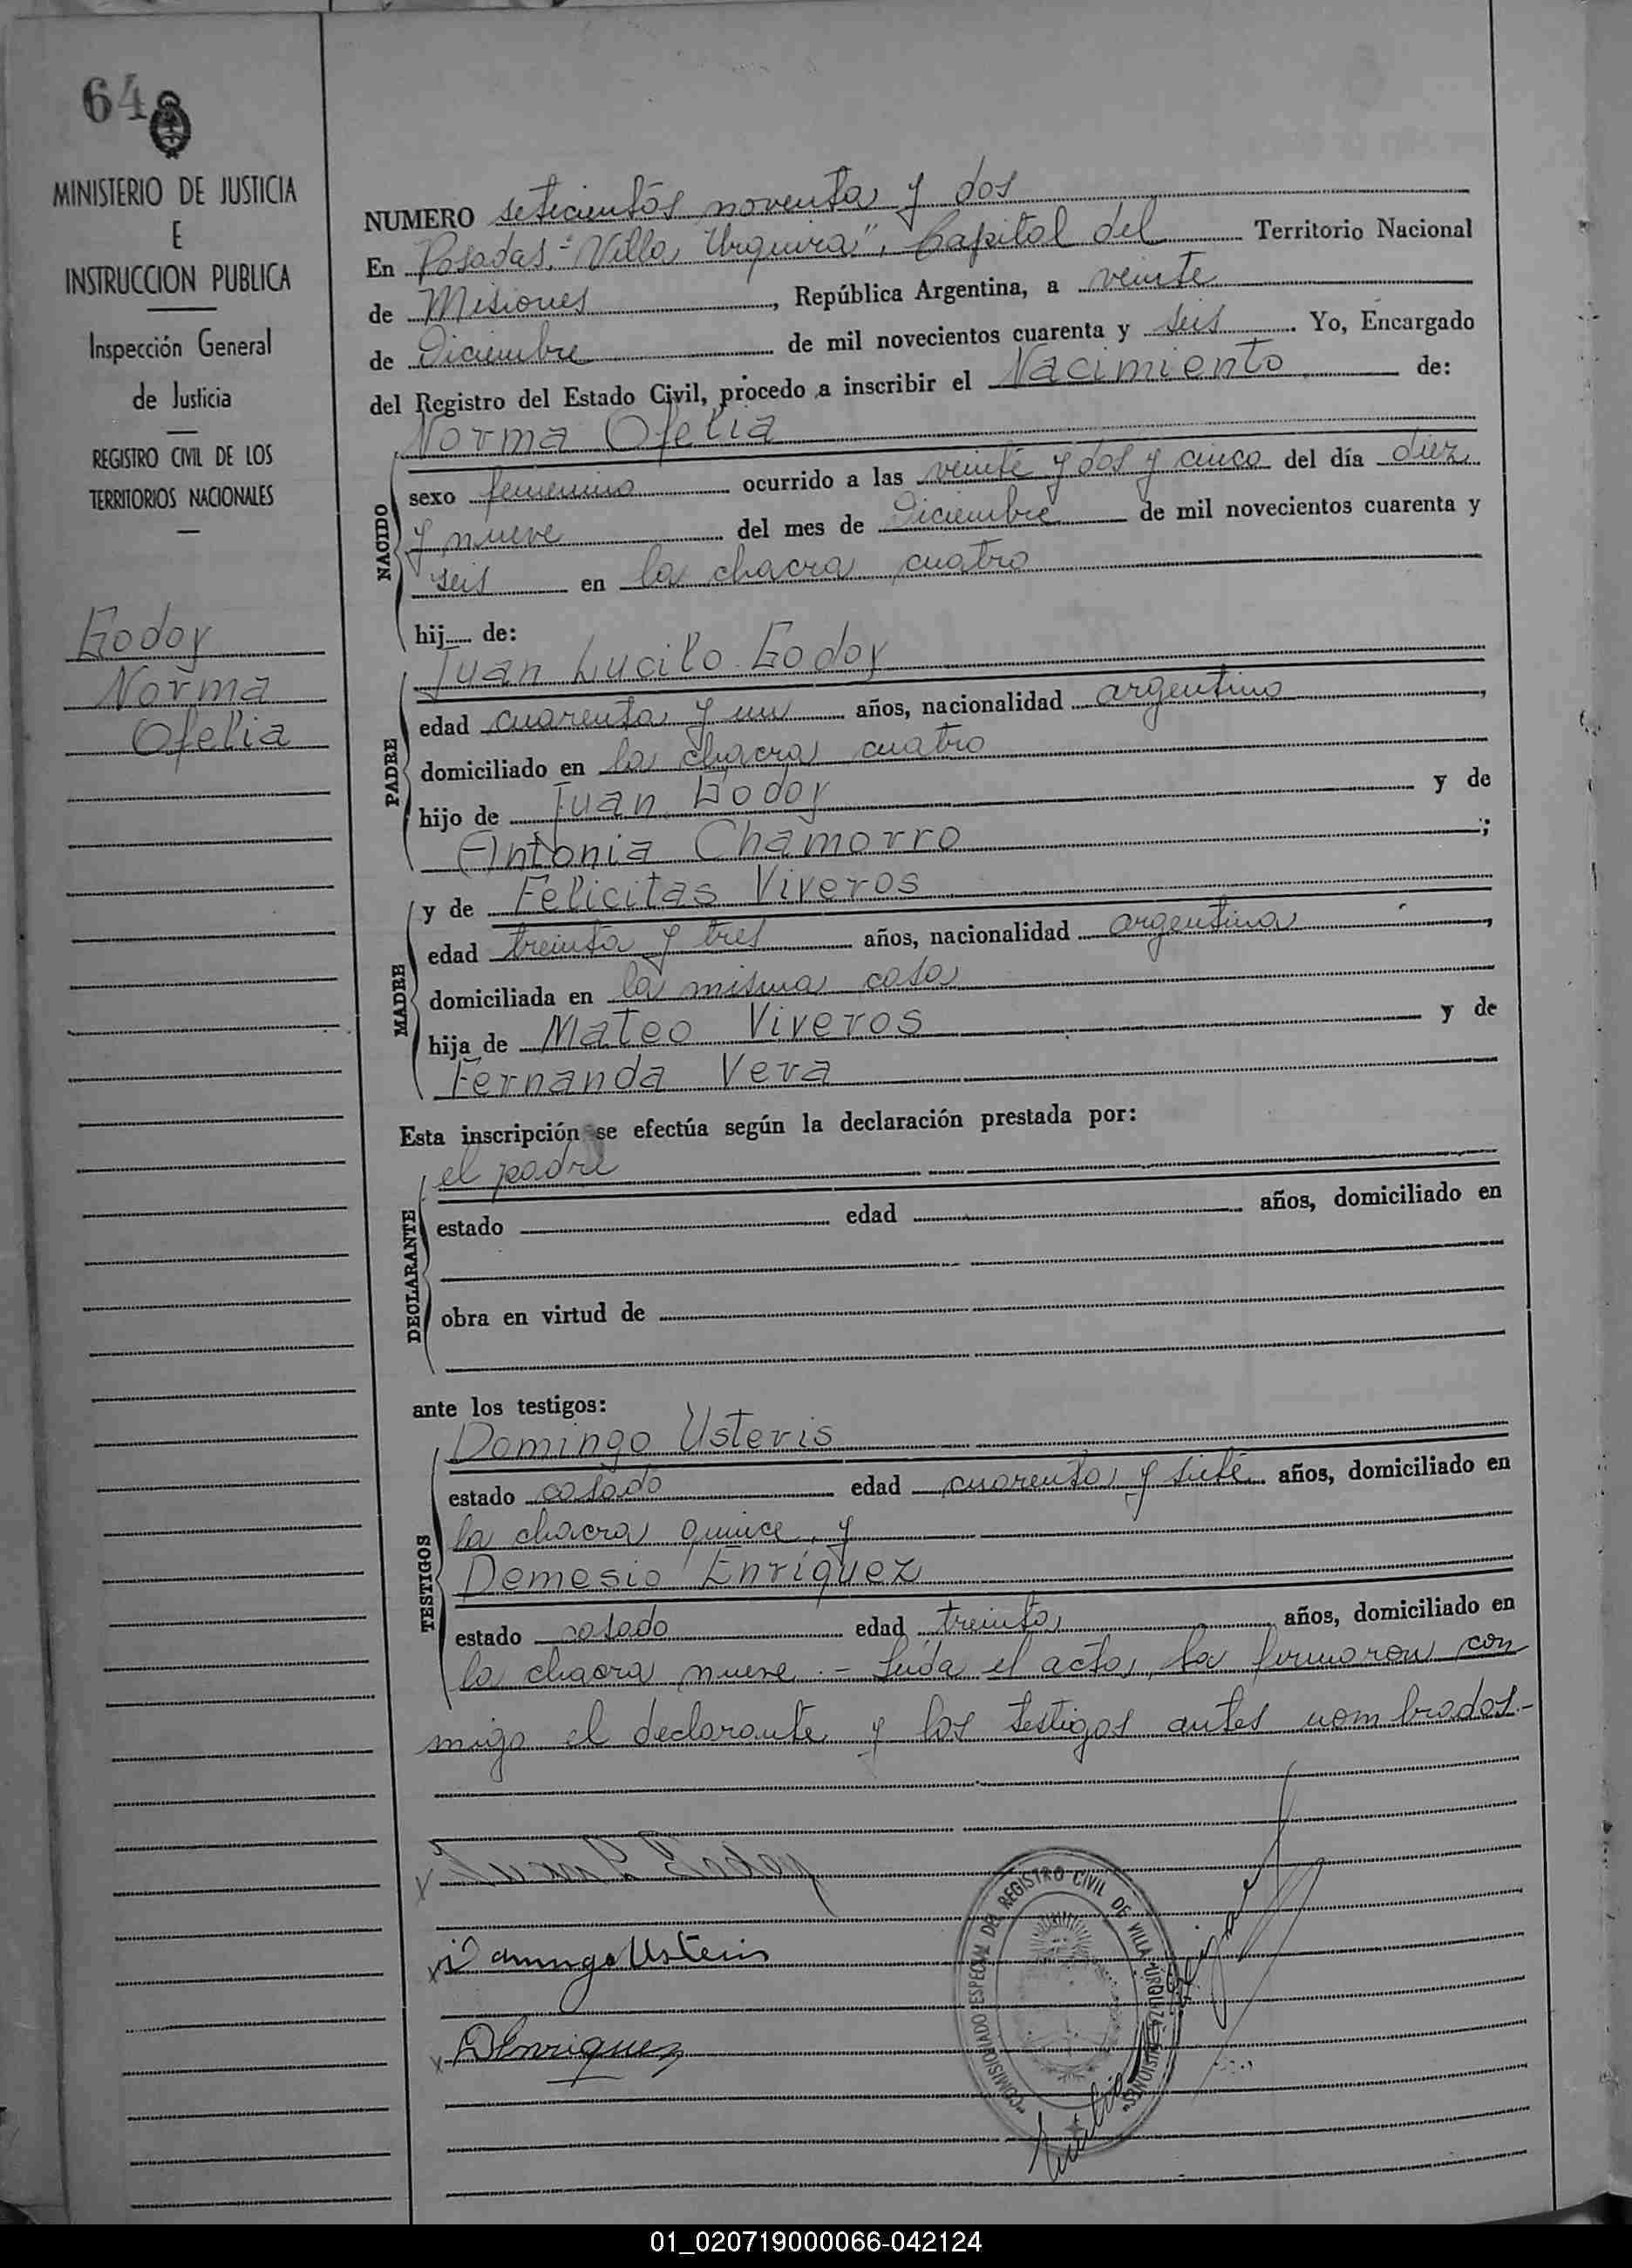 64
MINISTERIO DE JUSTICIA
E
INSTRUCCION PUBLICA
Inspección General
de Justicia
REGISTRO CIVIL DE LOS
TERRITORIOS NACIONALES
Godoy
Norma
Ofelia
NUMERO setecientos noventa y dos
En Posadas.-"Villa Urquiza", Capital del Territorio Nacional
de Misiones, República Argentina, a veinte
de Diciembre de mil novecientos cuarenta y seis. Yo, Encargado
del Registro del Estado Civil, procedo a inscribir el Nacimiento de:
Norma Ofelia
NACIDO
sexo femenino ocurrido a las veinte y dos y cinco del día diez
y nueve del mes de Diciembre de mil novecientos cuarenta y
seis en la chacra cuatro
hij de:
Juan Lucilo Godoy
PADRE
edad cuarenta y un años, nacionalidad argentino,
domiciliado en la chacra cuatro
hijo de Juan Godoy y de
Antonia Chamorro;
y de Felicitas Viveros
MADRE
edad treinta y tres años, nacionalidad argentina,
domiciliada en la misma casa
hija de Mateo Viveros y de
Fernanda Vera
Esta inscripción se efectúa según la declaración prestada por:
el padre
DECLARANTE
estado edad años, domiciliado en
obra en virtud de
ante los testigos:
Domingo Usteris
TESTIGOS
estado casado edad cuarenta y siete años, domiciliado en
la chacra quince, y
Demesio Enríquez
estado casado edad treinta años, domiciliado en
la chacra nueve.- Leida el acta, la firmaron con
migo el declarante y los testigos antes nombrados.-
x Godoy
x Domingo Usteris
x DEnriquez
COMISIONADO ESPECIAL DEL REGISTRO CIVIL DE VILLA URQUIZA MISIONES
01_020719000066-042124